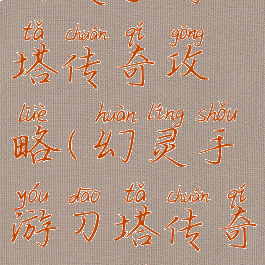 tǎ chuán qí gōng
塔传奇攻
lüè huàn líng shǒu
略(幻灵手
yóu dāo tǎ chuán qí
游刀塔传奇